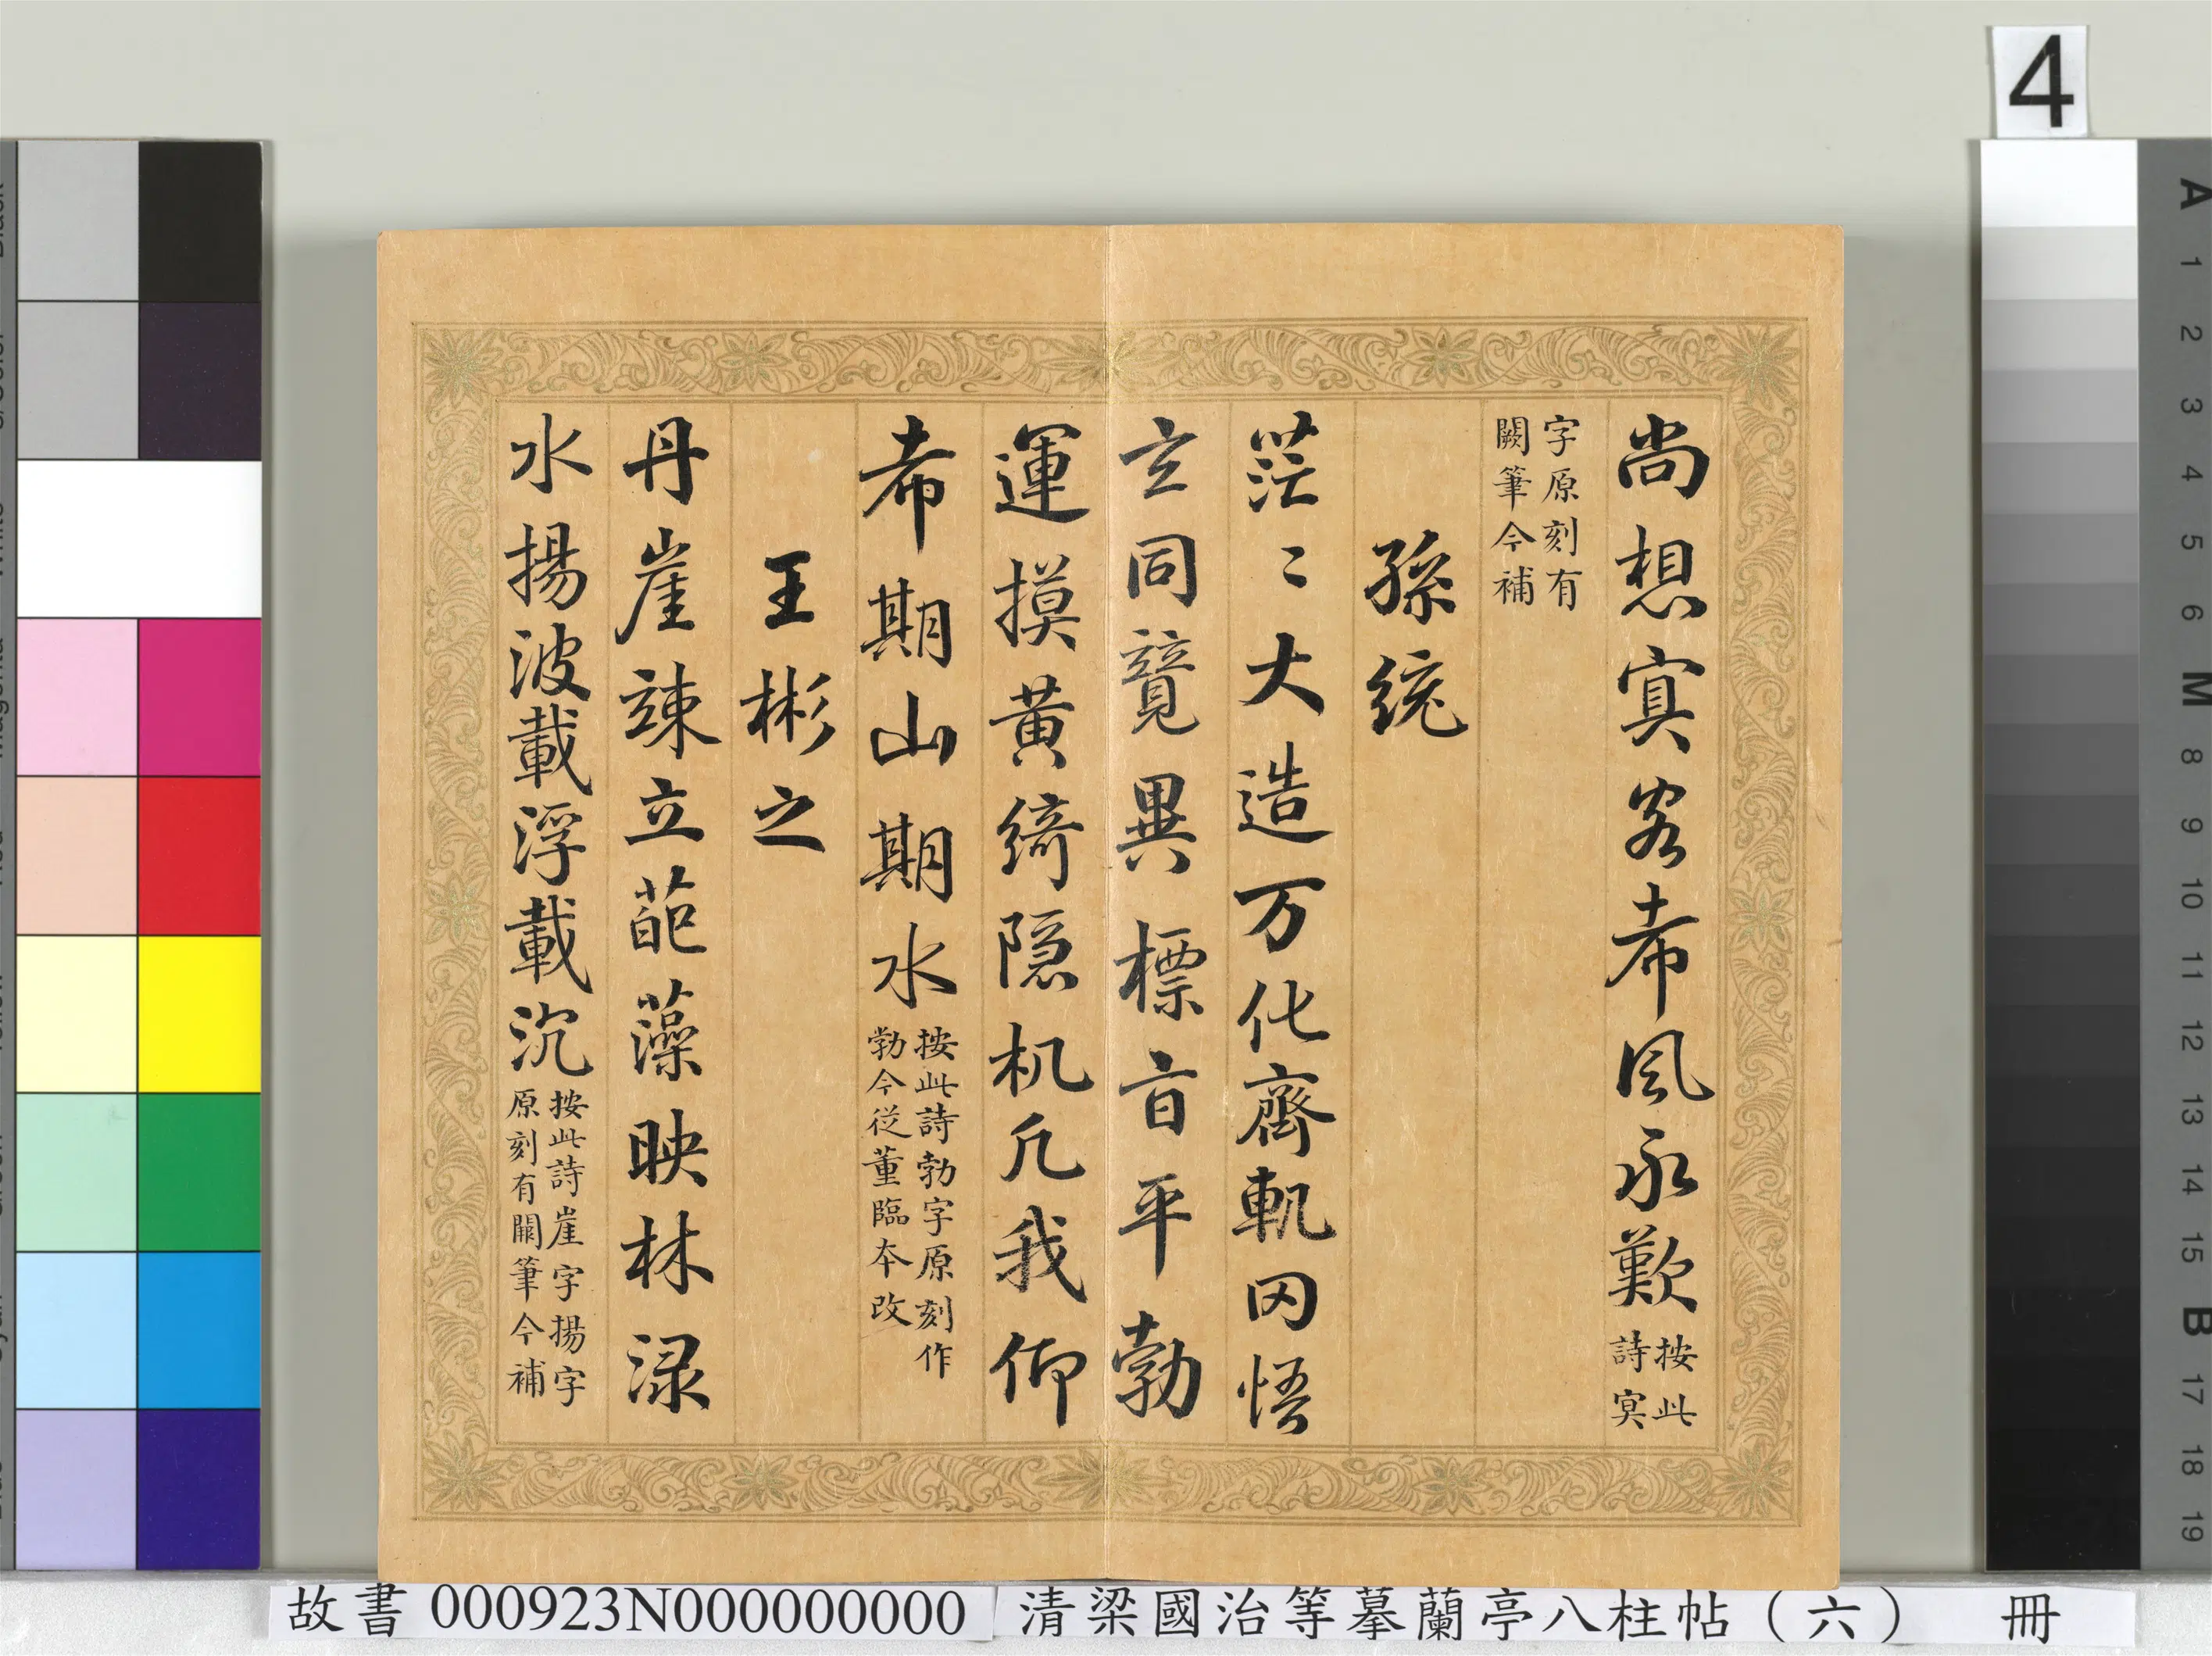 4
尚想㝠客希風永歎按此詩㝠
字原刻有闕筆今補
孫統
茫〻大造万化齊軌罔悟
玄同競異標旨平勃
運摸黃綺隱机凡我仰
希期山期水按此詩勃字原刻作勃今從董臨本改
王彬之
丹崖竦立葩藻映林渌
水揚波載浮載沉按此詩崖字揚字原刻有闕筆今補
故書 000923N000000000 清梁國治等摹蘭亭八柱帖（六） 冊
A 1 2 3 4 5 6 M 8 9 10 11 12 13 14 15 B 17 18 19